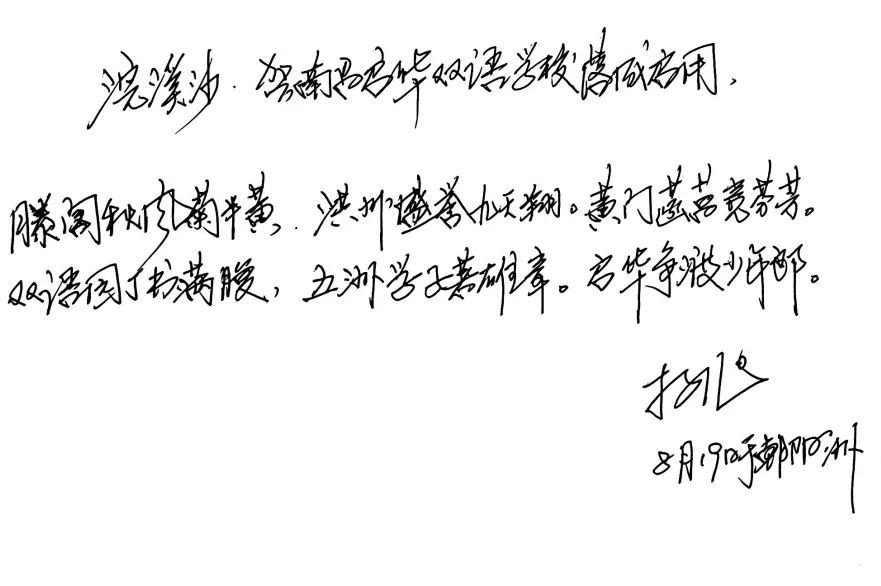 浣溪沙·贺南昌启华双语学校落成启用、
滕阁秋风菊半黄,洪州盛誉九天翔。黄门菡萏竞芬芳。
双语园丁书满腹,五洲学子慕雄章。启华争渡少年郎。
8月19日于朝阳洲